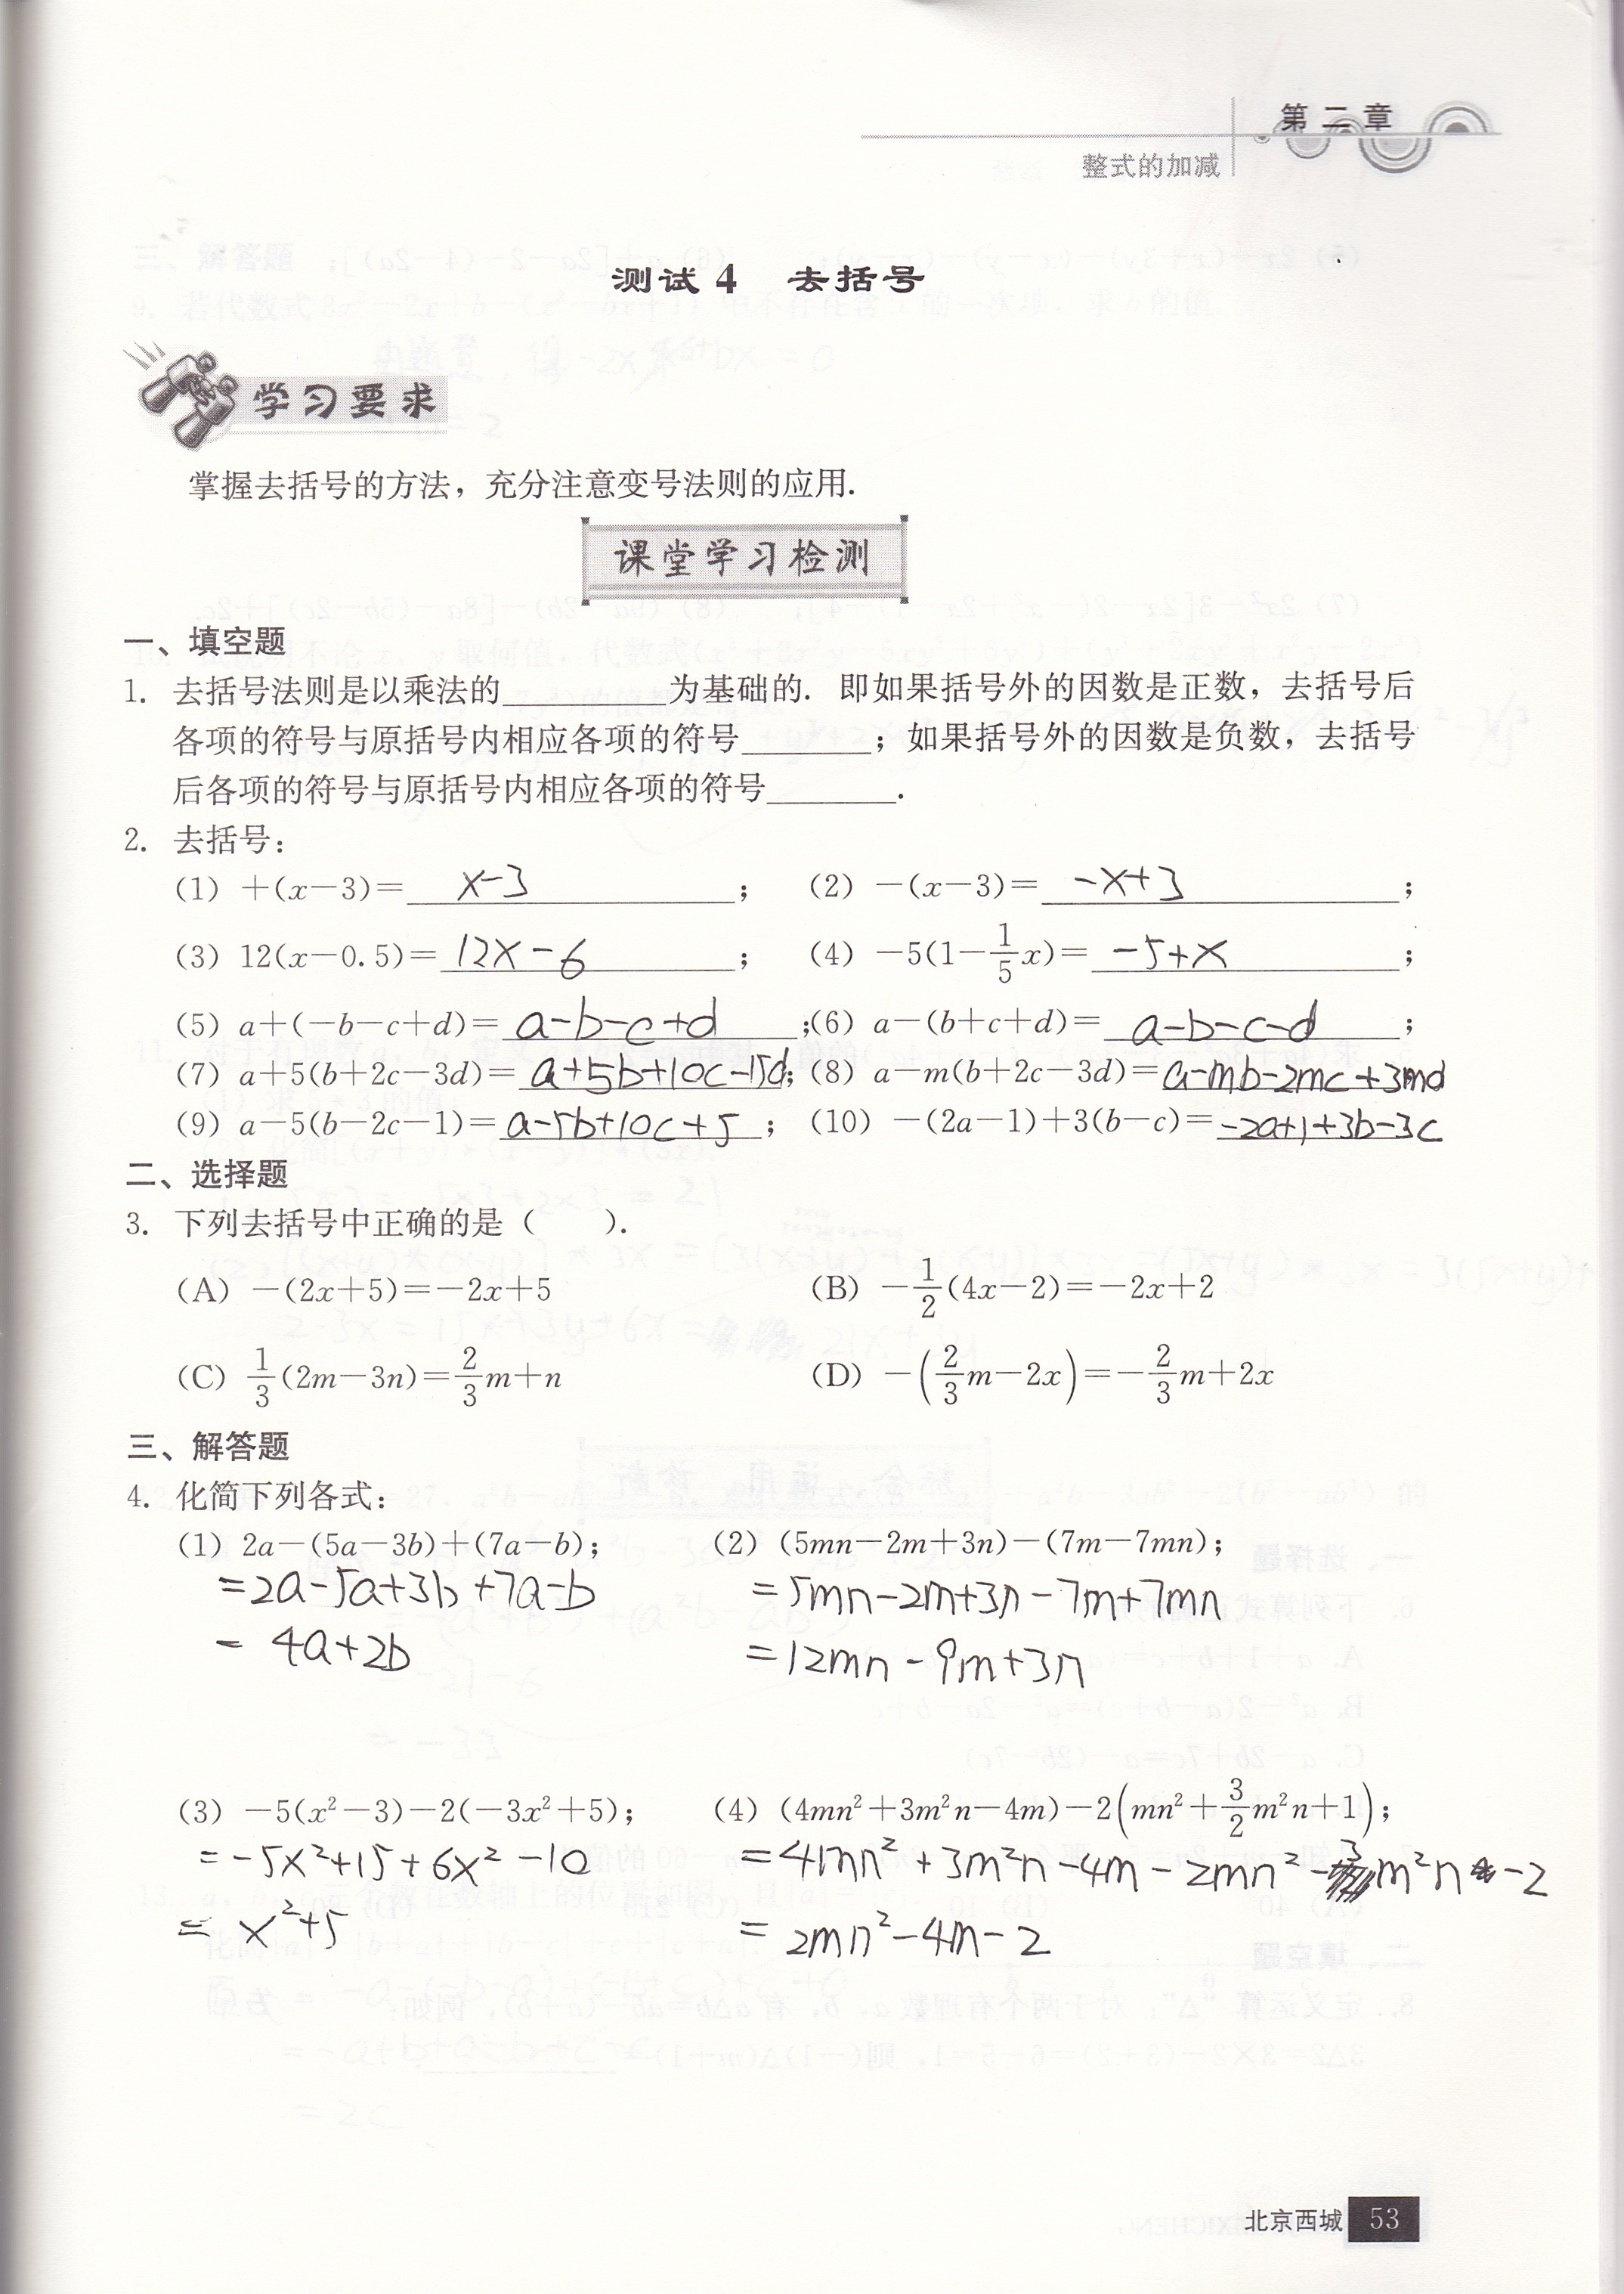 第二章
整式的加减
测试4 去括号
学习要求
掌握去括号的方法，充分注意变号法则的应用.
课堂学习检测
一、填空题
1. 去括号法则是以乘法的__________为基础的. 即如果括号外的因数是正数，去括号后
各项的符号与原括号内相应各项的符号________；如果括号外的因数是负数，去括号
后各项的符号与原括号内相应各项的符号________.
2. 去括号：
(1) +(x−3)= x−3 ； (2) −(x−3)= −x+3 ；
(3) 12(x−0.5)= 12x−6 ； (4) −5(1−1/5x)= −5+x ；
(5) a+(−b−c+d)= a−b−c+d ；(6) a−(b+c+d)= a−b−c−d ；
(7) a+5(b+2c−3d)= a+5b+10c−15d；(8) a−m(b+2c−3d)= a−mb−2mc+3md
(9) a−5(b−2c−1)= a−5b+10c+5 ； (10) −(2a−1)+3(b−c)= −2a+1+3b−3c
二、选择题
3. 下列去括号中正确的是（ ）.
(A) −(2x+5)=−2x+5 (B) −1/2(4x−2)=−2x+2
(C) 1/3(2m−3n)=2/3m+n (D) −(2/3m−2x)=−2/3m+2x
三、解答题
4. 化简下列各式：
(1) 2a−(5a−3b)+(7a−b)； (2) (5mn−2m+3n)−(7m−7mn)；
=2a−5a+3b+7a−b =5mn−2m+3n−7m+7mn
= 4a+2b =12mn−9m+3n
(3) −5(x²−3)−2(−3x²+5)； (4) (4mn²+3m²n−4m)−2(mn²+3/2m²n+1)；
=−5x²+15+6x²−10 =4mn²+3m²n−4m−2mn²−3m²n−2
= x²+5 = 2mn²−4m−2
北京西城 53